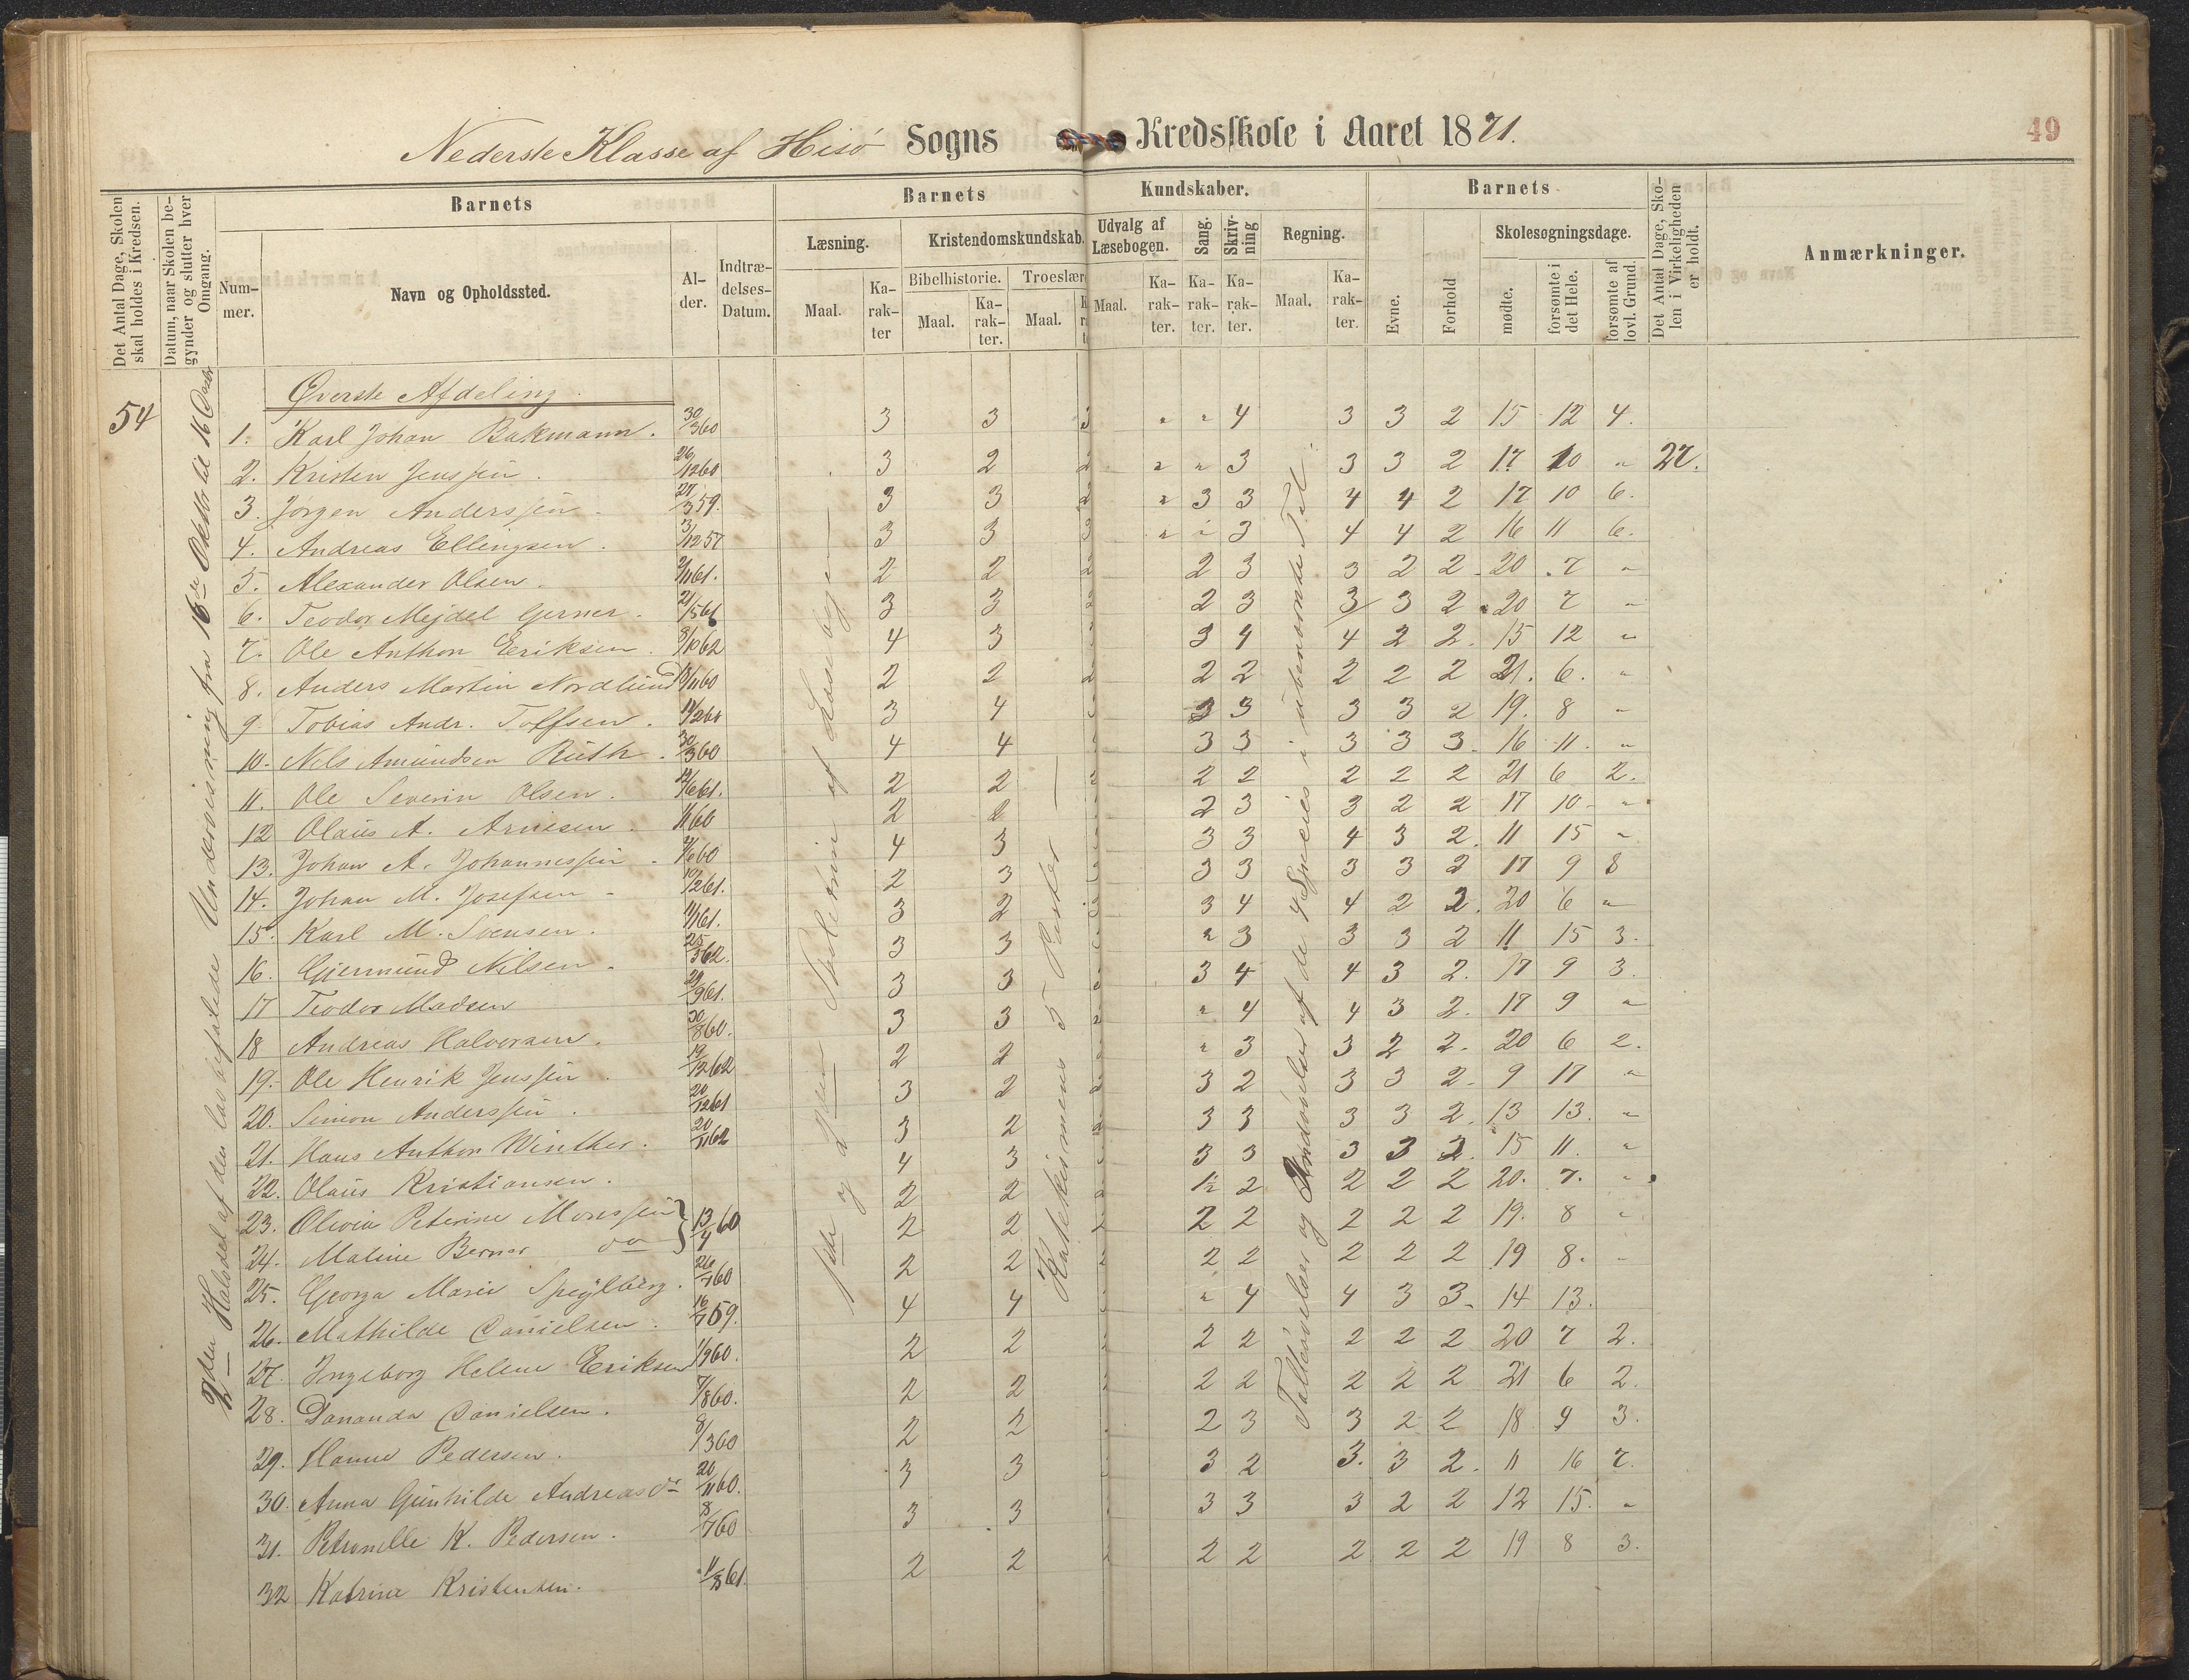 Nederste Klasse af Hisö Sogns Kredsskole i Aaret 1871.
49
Det Antal Dage, Skolen skal holdes i Kredsen.
Datum, naar Skolen begynder og slutter hver Omgang.
Barnets
Nummer.
Navn og Opholdssted.
Alder.
Indtrædelses-Datum.
Barnets Kundskaber.
Læsning.
Maal.
Karakter
Kristendomskundskab.
Bibelhistorie.
Maal.
Karakter.
Troeslær
Maal.
Udvalg af Læsebogen.
Maal.
Karakter.
Sang.
Karakter.
Skrivning
Karakter.
Regning.
Maal.
Karakter.
Barnets
Evne.
Forhold
Skolesøgningsdage.
mødte.
forsømte i det Hele.
forsømte af lovl. Grund.
Det Antal Dage, Skolen i Virkeligheden er holdt.
Anmærkninger.
54
27.
Øverste Afdeling.
1. Karl Johan Bakmann. 30/3 60 3 3 3 " " 4 3 3 2 15 12 4.
2. Kristen Jenssen. 26/12 60 3 2 2 " " 3 3 3 2 17 10 "
3. Jörgen Anderssen. 27/3 59. 3 3 2 " 3 3 4 4 2 17 10 6.
4. Andreas Ellingsen. 3/12 57 3 3 3 " " 3 4 4 2 16 11 6.
5. Alexander Olsen. 2/11 61. 2 2 2 2 3 3 2 2 20 7 "
6. Teodor Mejdel Gerner. 21/5 61 3 3 2 2 3 3 3 2 20 7 "
7. Ole Anthon Eriksen. 8/10 62 4 3 3 4 4 2 2. 15 12 "
8. Anders Martin Nordlund 8/11 60 2 2 2 2 2 2 2 2 21. 6. "
9. Tobias Andr. Toffsen. 14/2 60 3 4 3 3 3 3 2 19. 8 "
10. Nels Amundsen Ruth. 30/3 60 4 4 3 3 3 3 3. 16 11. "
11. Ole Severin Olsen. 12/6 61. 2 2 2 2 2 2 2 2 21 6 2.
12 Olaus A. Arnesen. 2 2 3 3 2 2 17 10 "
13. Johan A. Johannessen. 7/6 60 4 3 3 3 4 3 2. 11 15 "
14. Johan M. Josefsen. 10/2 61. 2 3 3 3 3 3 2 17 9 8
15. Karl M. Svensen. 3 2 3 3 4 4 2 2. 20 6 "
16. Gjermund Nilsen. 25/3 62. 3 3 " 3 3 3 2 11 15 3.
17 Teodor Madsen 29/9 61. 3 3 3 3 4 4 3 2. 17 9 3.
18 Andreas Halvorsen. 30/8 60. 3 3 2 " 4 4 3 2. 17 9 "
19. Ole Henrik Jenssen. 19/12 62 2 2 " 3 3 2 2. 20 6 2.
20. Simon Anderssen. 20/12 61 3 2 2 3 2 3 3 2. 9 17 "
21. Hans Anthon Winther. 20/11 62 3 2 2 3 3 3 3 2. 13 13. "
22. Olaus Kristiansen. 4 3 3 3 3 3 2. 15 11. "
23. Olivia Peterine Monssen } 13/4 60 2 2 2 1½ 2 2 2 2 20. 7. "
24. Maline Berner do 2 2 2 2 2 2 2 2 19. 8 "
25. Georga Marie Spejlberg. 26/7 60 2 2 2 2 2 2 2 2 19 8. "
26. Mathilde Danielsen. 16/7 59. 4 4 " 4 4 3 3. 14 13.
27. Ingeborg Helene Eriksen 1/9 60. 2 2 2 2 2 2 2 20 7 2.
28. Dananda Danielsen. 7/8 60. 2 2 2 2 2 2 2 21 6 2.
29. Hanne Pedersen. 9/3 60 2 2 2 3 3 2 2 18 9 3.
30. Anna Gunhilde Andreasdr 20/11 60. 3 3 3 2 3. 3 2. 11 16 7.
31. Petronelle K. Pedersen. 8/7 60 3 3 3 3 3 2 2 12 15. "
32 Katrine Kristensen. 11/8 61. 2 2 2 2 2 2 2 19 8 3.
2den Halvdel af den lovbefalede Undervisning fra 16de Oktbr til 16 Decbr
1ste og 2den Skoletrin af Læsebogen
Katekismens 5 Parter
Talleövelser og Smaaövelser af de 4 Species i ubenævnte Tal.